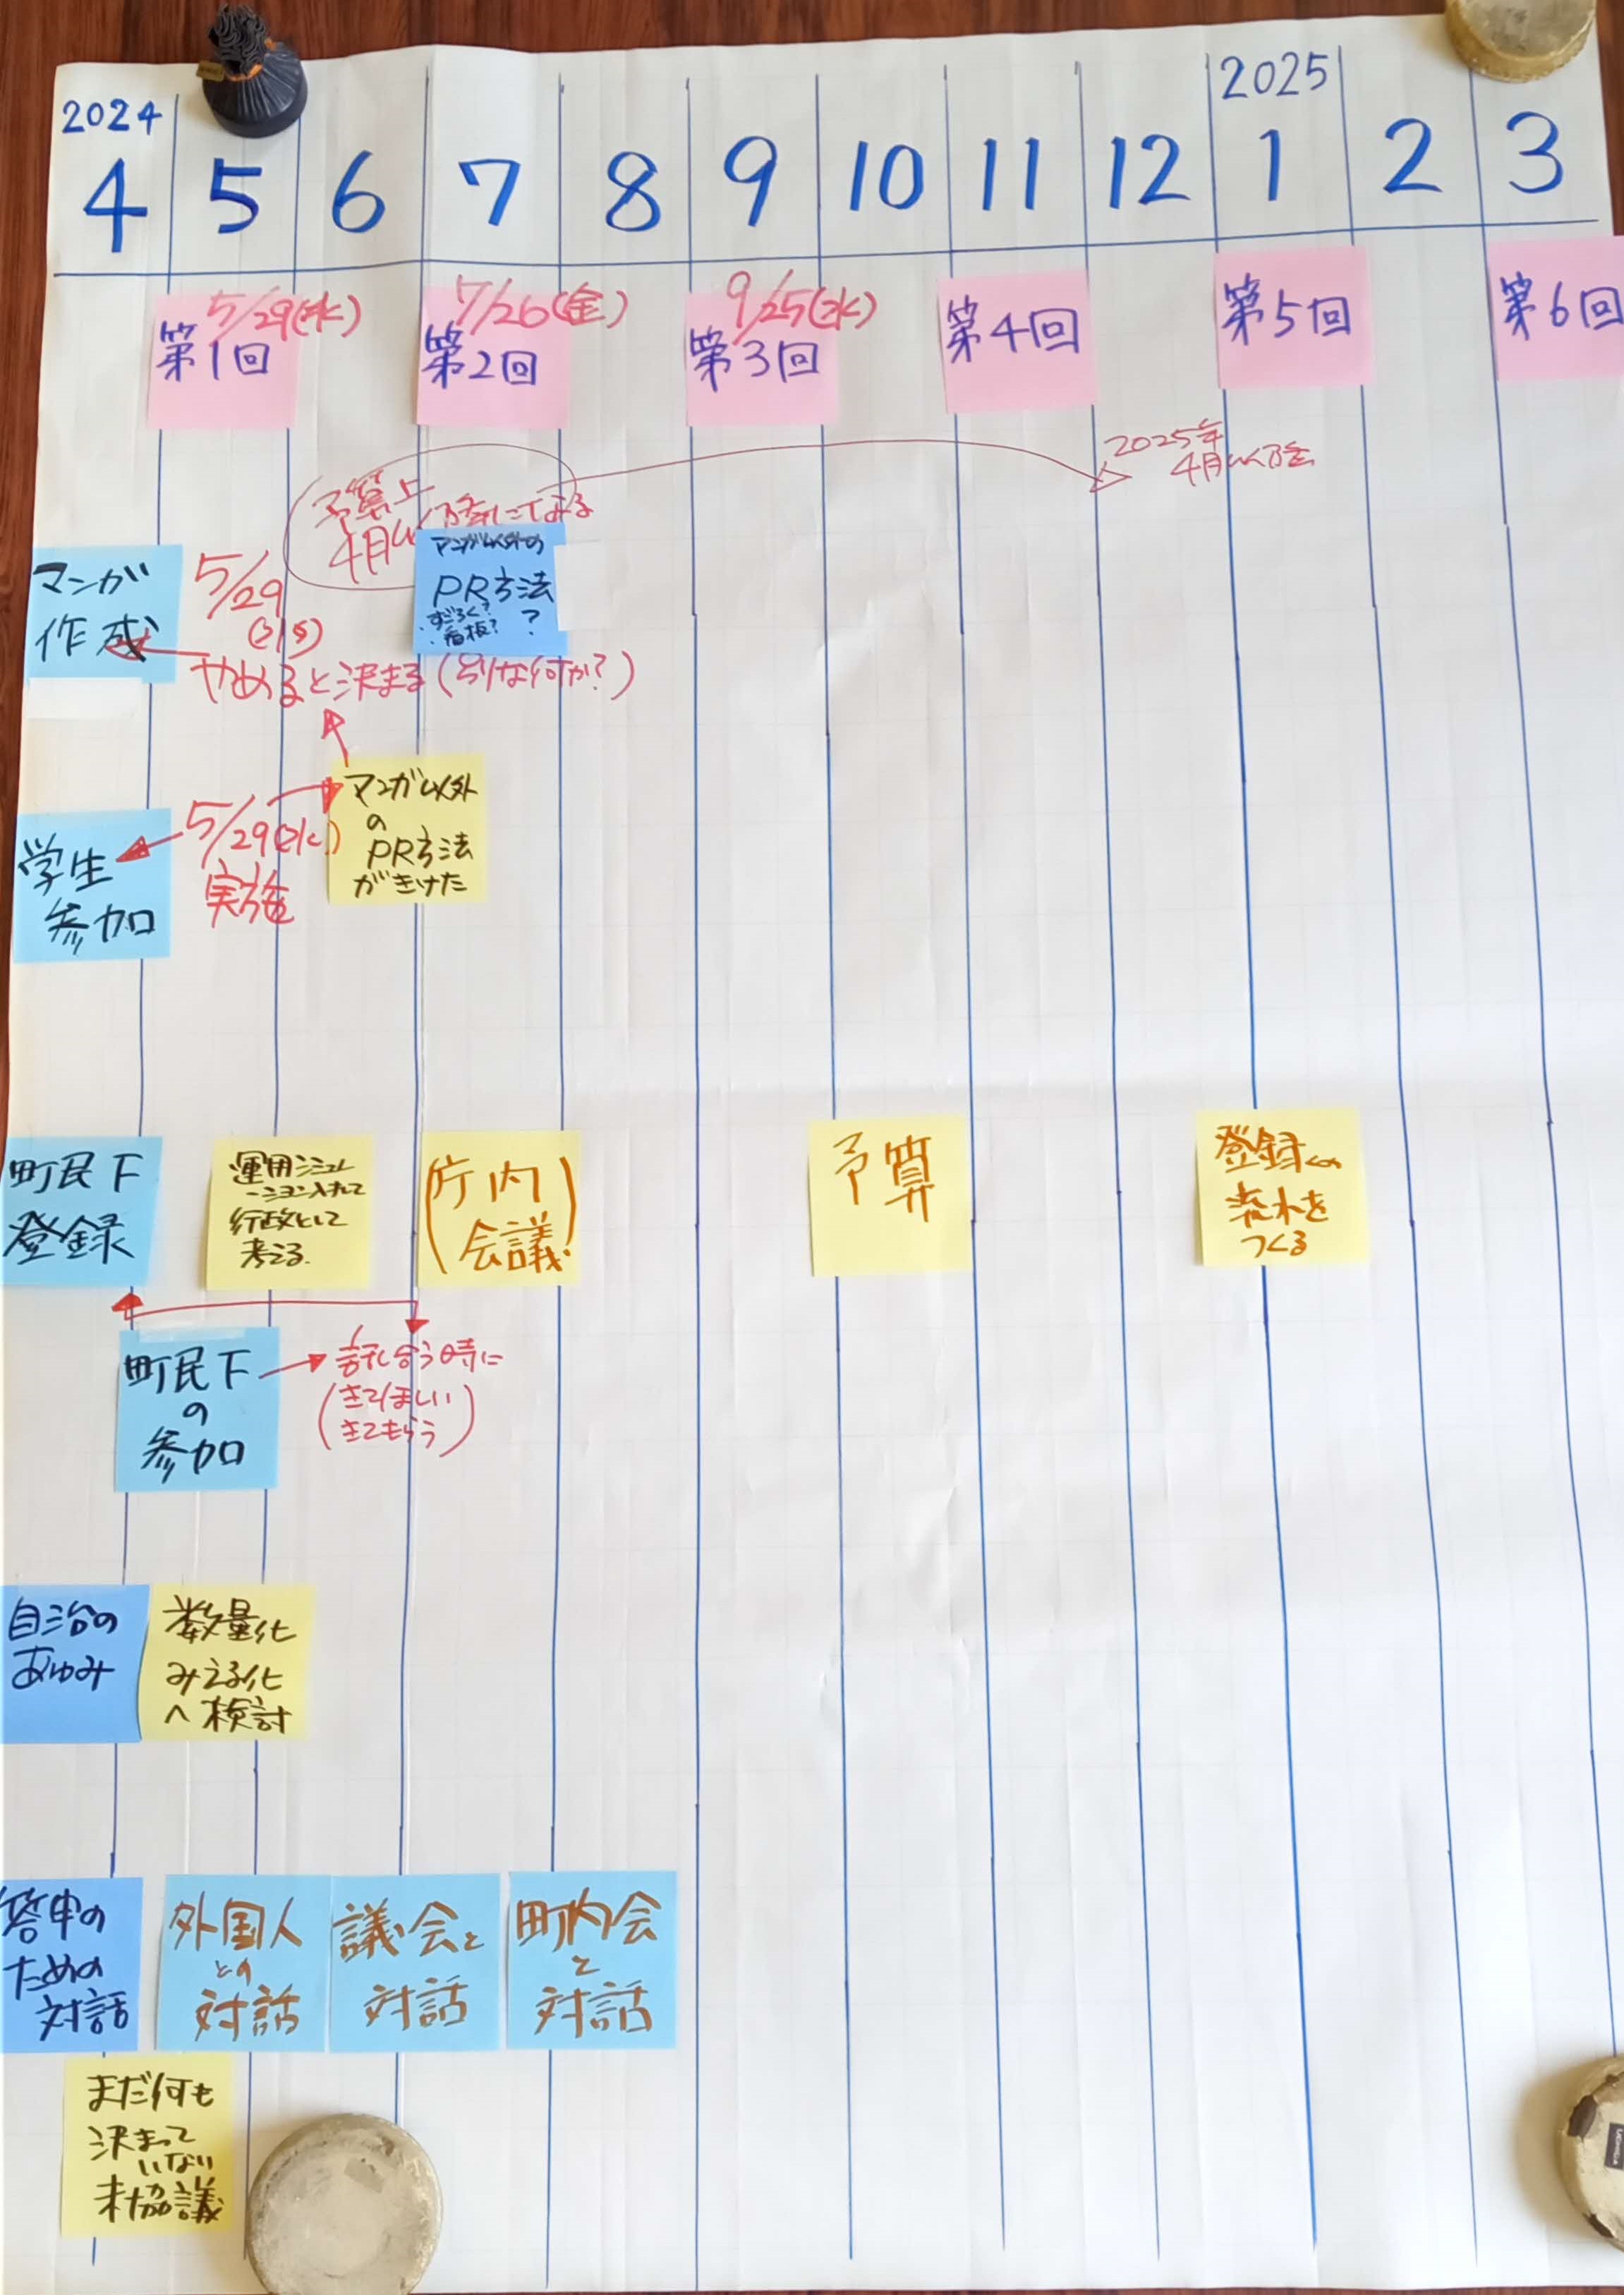 2024
2025
4 5 6 7 8 9 10 11 12 1 2 3
5/29(水)
第1回
7/26(金)
第2回
9/25(水)
第3回
第4回
第5回
第6回
予算上
4月以降になる
2025年
4月以降
マンガ
作成
5/29
(水)
やめると決まる(別な何か?)
マンガ以外の
PR方法
・すごろく?
・看板? ?
学生
参加
5/29(水)
実施
マンガ以外
の
PR方法
がきけた
町民下
登録
運用シミュレ
ーション入れて
行政として
考える.
(庁内
会議)
予算
登録の
流れを
つくる
町民下
の
参加
話し合う時に
(きてほしい
きてもらう)
自治の
あゆみ
数量化
みえる化
へ検討
答申の
ための
対話
外国人
との
対話
議会と
対話
町内会
と
対話
まだ何も
決まって
いない
未協議